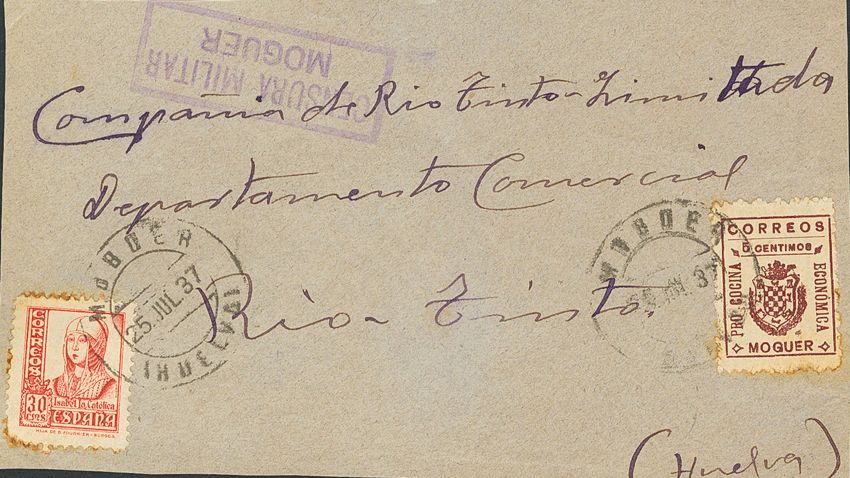 CENSURA MILITAR
MOGUER
Compania de Rio Tinto-Limittada
Departamento Comercial
Rio-Tinto.
(Huelva)
MOGUER
25 JUL 37
MOGUER
JUL 37
CORREOS
30
CTMS
Isabel la Católica
ESPAÑA
HIJA DE B. FOURNIER-BURGOS
CORREOS
5 CENTIMOS
PRO COCINA
ECONÓMICA
MOGUER